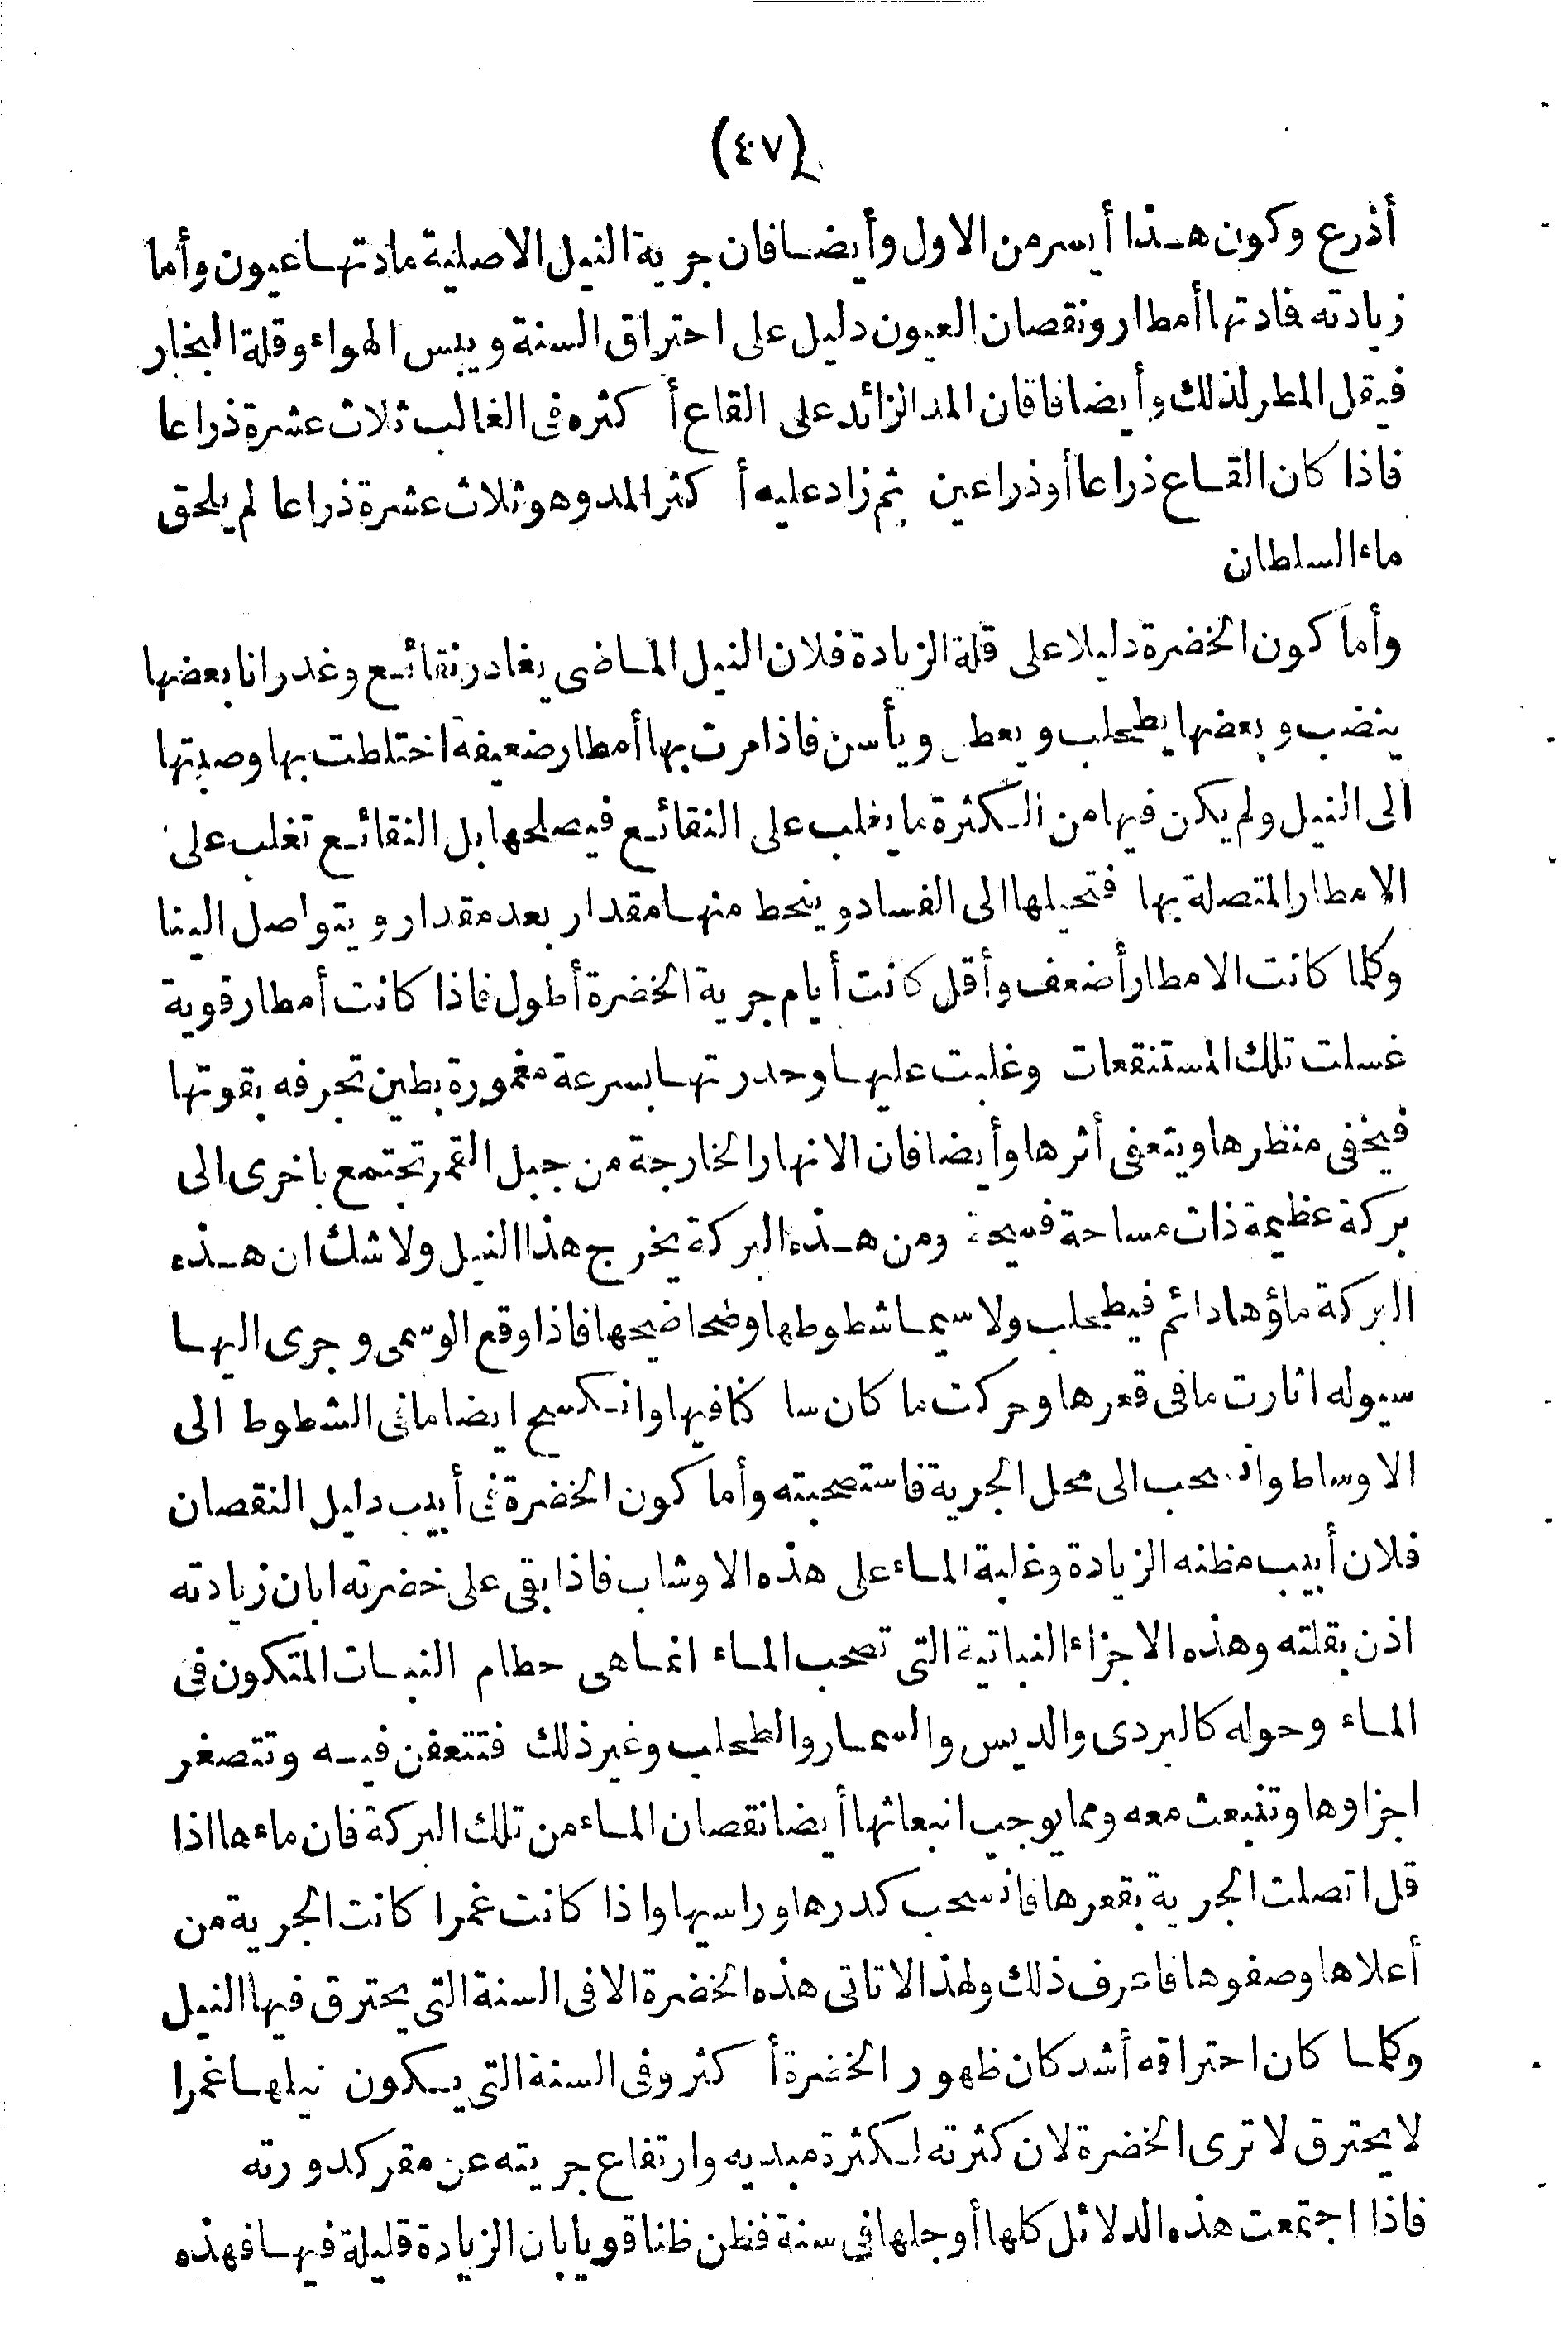 (٤٠٧)
أذرع وكون هذا أيسر من الاول وأيضا فان جرية النيل الاصلية مادتها عيون وأما
زيادته فادتها أمطار ونقصان العيون دليل على احتراق السنة ويبس الهواء وقلة البخار
فيقل المطر لذلك وأيضا فاقان المد الزائد على القاع أكثره فى الغالب ثلاث عشرة ذراعا
فاذا كان القاع ذراعا أو ذراعين ثم زاد عليه أكثر المد وهو ثلاث عشرة ذراعا لم يلحق
ماء السلطان
وأما كون الخضرة دليلا على قلة الزيادة فلان النيل الماضى يغادر نقائع وغدرانا بعضها
ينضب وبعضها يطحلب ويعط ويأسن فاذا مرت بها أمطار ضعيفة اختلطت بها وصبتها
الى النيل ولم يكن فيها من الكثرة ما يغلب على النقائع فيصلحها بل النقائع تغلب على
الامطار المتصلة بها فتحيلها الى الفساد وينحط منها مقدار بعد مقدار ويتواصل الينا
وكلما كانت الامطار أضعف وأقل كانت أيام جرية الخضرة أطول فاذا كانت أمطار قوية
غسلت تلك المستنقعات وغلبت عليها وحدرتها بسرعة مغمورة بطين تجرفه بقوتها
فيخفى منظرها ويتعفى أثرها وأيضا فان الانهار الخارجة من جبل القمر تجتمع باخرى الى
بركة عظيمة ذات مساحة فسيحة ومن هذه البركة يخرج هذا النيل ولا شك ان هذه
البركة ماؤها دائم فيطحلب ولا سيما شطوطها وضحاضيحها فاذا وقع الوسمى وجرى اليها
سيوله اثارت مافى قعرها وحركت ما كان ساكنا فيها وانكسح ايضا مافى الشطوط الى
الاوساط وانسحب الى محل الجرية فاستصحبته وأما كون الخضرة فى أبيب دليل النقصان
فلان أبيب مظنه الزيادة وغلبة الماء على هذه الاوشاب فاذا بقى على خضرته ابان زيادته
اذن بقلته وهذه الاجزاء النباتية التى تصحب الماء انما هى حطام النبات المتكون فى
الماء وحوله كالبردى والديس والسمار والطحلب وغير ذلك فتتعفن فيه وتتصغر
اجزاوها وتنبعث معه ومما يوجب انبعاثها أيضا نقصان الماء من تلك البركة فان ماءها اذا
قل اتصلت الجرية بقعرها فانسحب كدرها وراسيها واذا كانت غمرا كانت الجرية من
أعلاها وصفوها فاعرف ذلك ولهذا لا تاتى هذه الخضرة الا فى السنة التى يحترق فيها النيل
وكلما كان احتراقه أشد كان ظهور الخضرة أكثر وفى السنة التى يكون نيلها غمرا
لا يحترق لا ترى الخضرة لان كثرته لكثرة مبديه وارتفاع جريته عن مقر كدورته
فاذا اجتمعت هذه الدلائل كلها أو جلها فى سنة فظن ظنا قويا بان الزيادة قليلة فيها فهذه